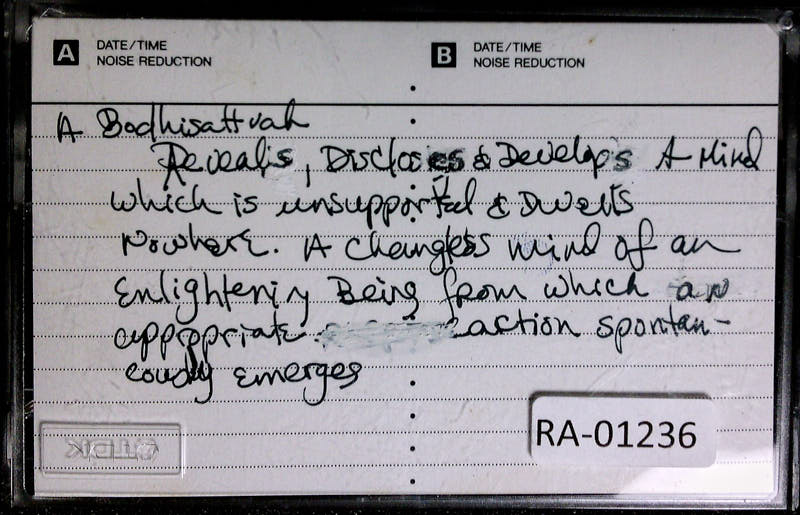 A DATE/TIME NOISE REDUCTION B DATE/TIME NOISE REDUCTION
A Bodhisattvah
Reveals, Discloses & Develops A Mind
which is unsupported & Dwells
Nowhere. A changless mind of an
Enlightening Being from which an
appropriate action spontan-
eously emerges
TDK
RA-01236